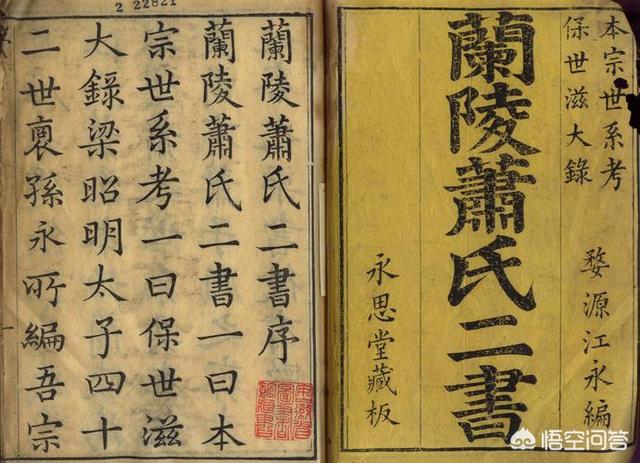 本宗世系考
保世滋大錄
婺源江永編
蘭陵蕭氏二書
永思堂藏板
2 22821
蘭陵蕭氏二書序
蘭陵蕭氏二書一曰本
宗世系考一曰保世滋
大錄梁昭明太子四十
二世裔孫永所編吾宗
悟空问答